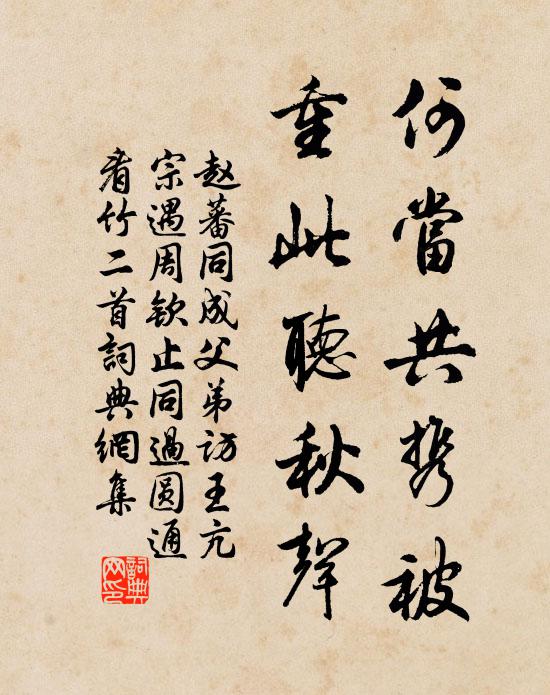 何當共携被
重此聽秋聲
赵蕃同成父弟访王亢
宗遇周钦止同過圆通
看竹二首詞典網集
詞典网印